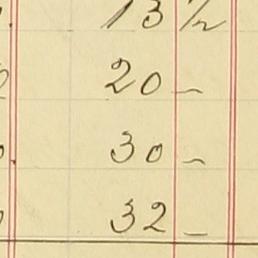 13 ½
20 -
30 -
32 -